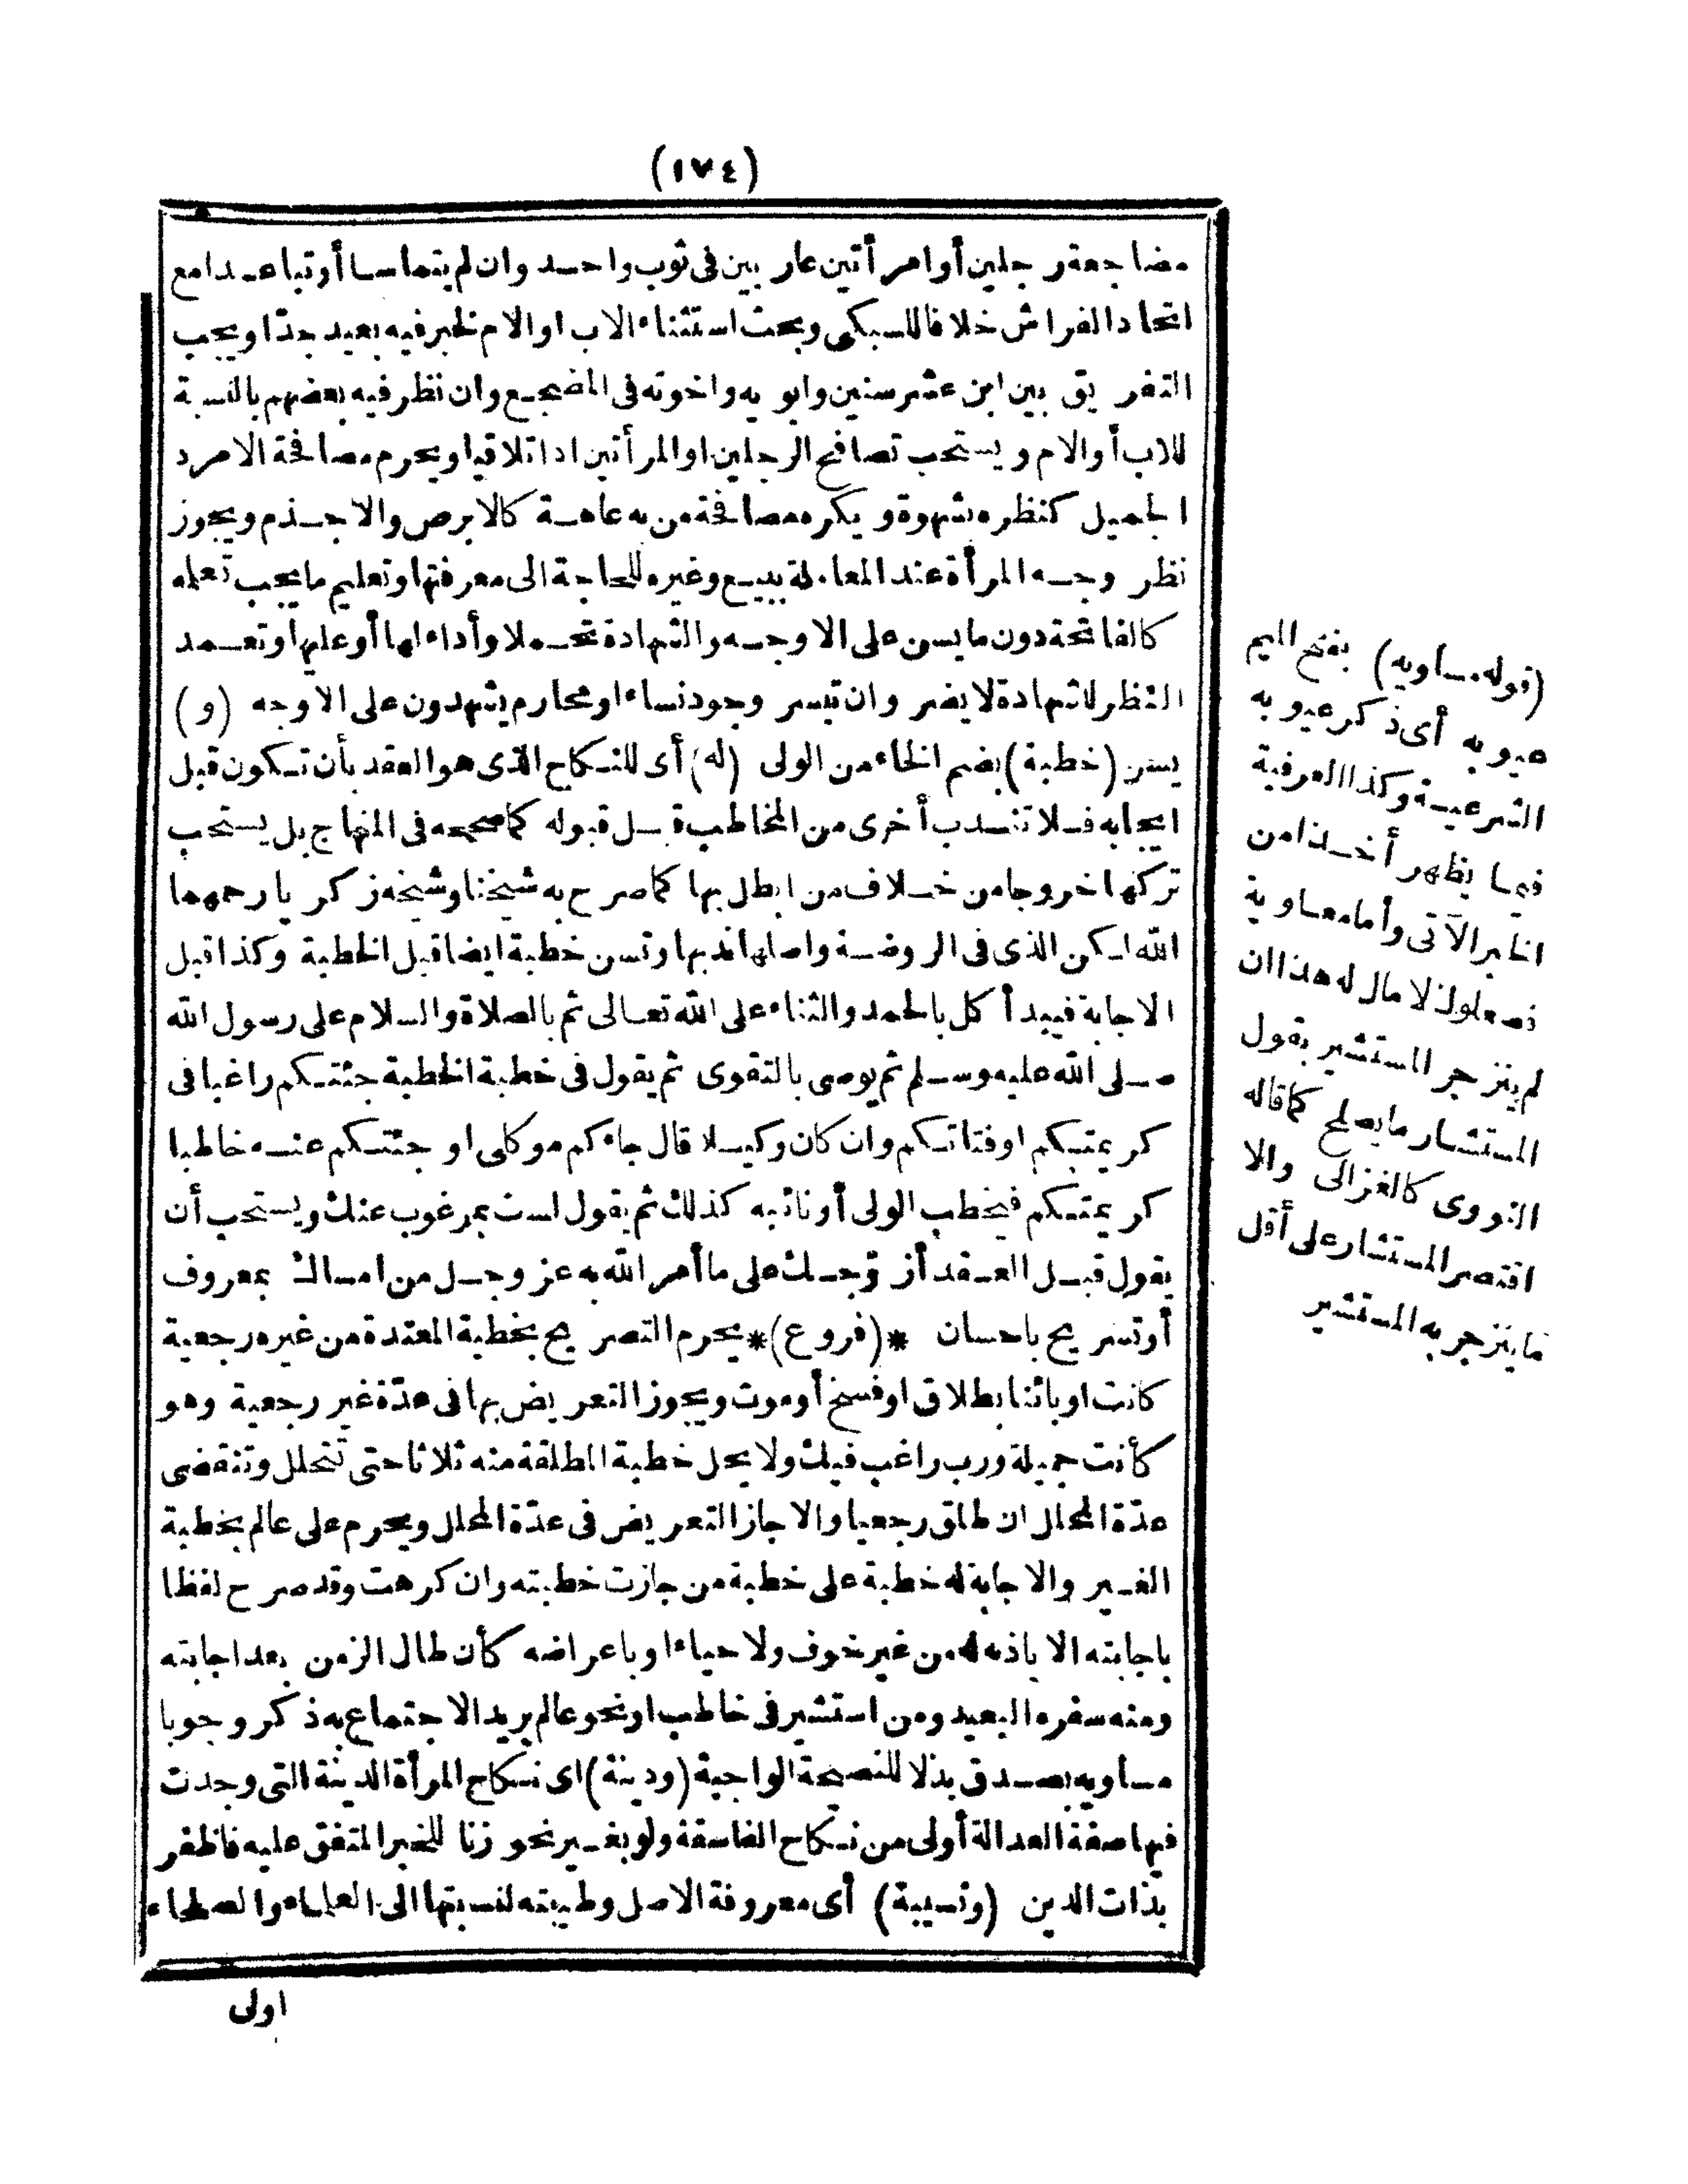 (١٧٤)
مضاجعة رجلين أو امرأتين عاريين فى ثوب واحد وان لم يتماسا أو تباعدا مع
اتحاد الفراش خلافا للسبكى وبحث استثناء الاب او الام لخبر فيه بعيد جدّا ويجب
التفريق بين ابن عشر سنين وابويه واخوته فى المضجع وان نظر فيه بعضهم بالنسبة
للاب أو الام ويستحب تصافح الرجلين او المرأتين اذا تلاقيا ويحرم مصافحة الامرد
الجميل كنظره بشهوة ويكره مصافحة من به عاهة كالابرص والاجذم ويجوز
نظر وجه المرأة عند المعاملة ببيع وغيره للحاجة الى معرفتها وتعليم ما يجب تعلمه
كالفاتحة دون ما يسن على الاوجه والشهادة تحملا وأداء لها أو عليها وتعمد
النظر للشهادة لا يضر وان تيسر وجود نساء او محارم يشهدون على الاوجه (و)
يسن (خطبة) بضم الخاء من الولى (له) أى للنكاح الذى هو العقد بأن تكون قبل
ايجابه فلا تندب أخرى من المخاطب قبل قبوله كما صححه فى المنهاج بل يستحب
تركها خروجا من خلاف من ابطل بها كما صرح به شيخنا وشيخه زكريا رحمهما
الله لكن الذى فى الروضة واصلها ندبها وتسن خطبة ايضا قبل الخطبة وكذا قبل
الاجابة فيبدأ كل بالحمد والثناء على الله تعالى ثم بالصلاة والسلام على رسول الله
صلى الله عليه وسلم ثم يوصى بالتقوى ثم يقول فى خطبة الخطبة جئتكم راغبا فى
كريمتكم او فتاتكم وان كان وكيلا قال جاءكم موكلى او جئتكم عنه خاطبا
كريمتكم فيخطب الولى أو نائبه كذلك ثم يقول لست بمرغوب عنك ويستحب أن
يقول قبل العقد أزوّجك على ما أمر الله به عز وجل من امساك بمعروف
أو تسريح باحسان *(فروع)* يحرم التصريح بخطبة المعتدة من غيره رجعية
كانت او بائنا بطلاق او فسخ أو موت ويجوز التعريض بها فى عدّة غير رجعية وهو
كأنت جميلة ورب راغب فيك ولا يحل خطبة المطلقة منه ثلاثا حتى تتحلل وتنقضى
عدّة المحلل ان طلق رجعيا والا جاز التعريض فى عدّة المحلل ويحرم على عالم بخطبة
الغير والاجابة له خطبة على خطبة من جازت خطبته وان كرهت وقد صرح لفظا
باجابته الا باذنه له من غير خوف ولا حياء او باعراضه كأن طال الزمن بعد اجابته
ومنه سفره البعيد ومن استشير فى خاطب او نحو عالم يريد الاجتماع به ذكر وجوبا
مساويه بصدق بذلا للنصيحة الواجبة (ودينة) اى نكاح المرأة الدينة التى وجدت
فيها صفة العدالة أولى من نكاح الفاسقة ولو بغير نحو زنا للخبر المتفق عليه فاظفر
بذات الدين (ونسيبة) أى معروفة الاصل وطيبته لنسبتها الى العلماء والصلحاء
اولى
(قوله مساويه) بفتح الميم
عيوبه أى ذكر عيوبه
الشرعية وكذا العرفية
فيما يظهر أخذا من
الخبر الآتى وأما معاوية
فصعلوك لا مال له هذا ان
لم ينزجر المستشير بقول
المستشار ما يصلح كما قاله
النووى كالغزالى والا
اقتصر المستشار على أقل
ما ينزجر به المستشير